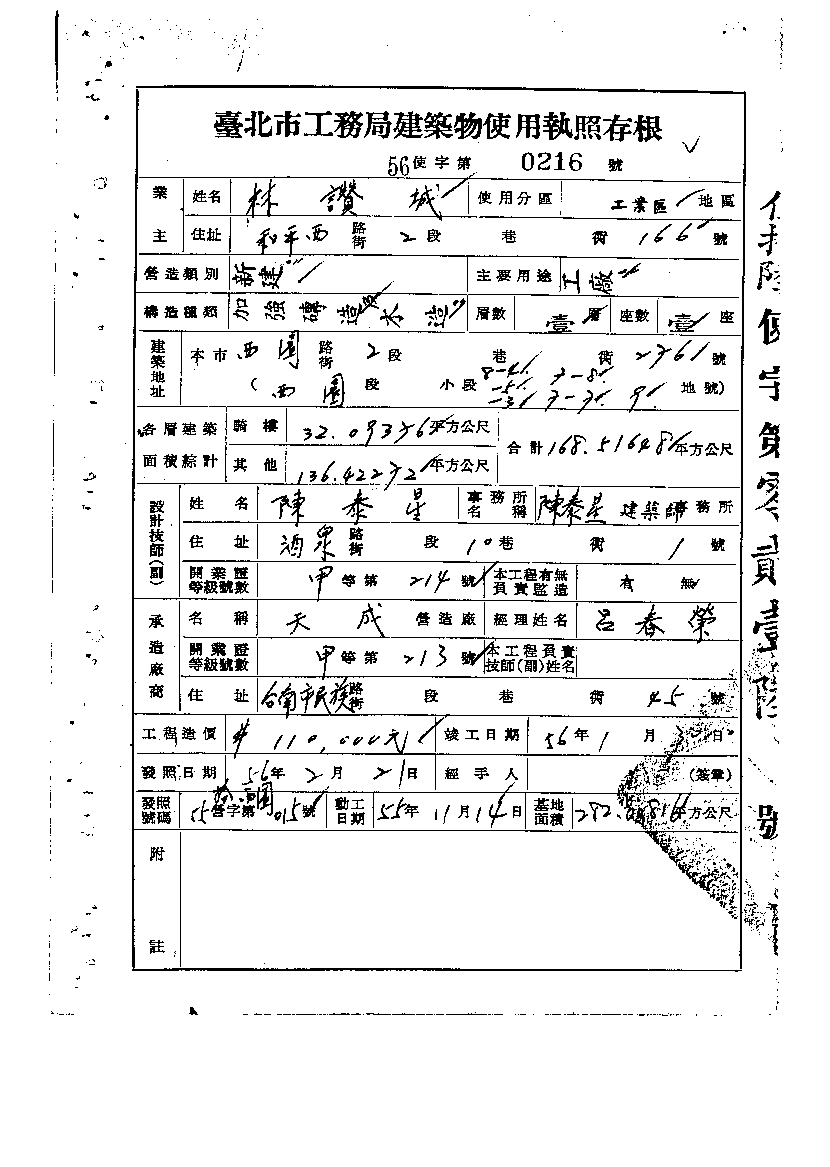 臺北市工務局建築物使用執照存根
56使字第 0216 號
業主 姓名 林讚城 使用分區 工業區 地區
住址 和平西 路街 2 段 巷 衖 166 號
營造類別 新建 主要用途 工廠
構造種類 加強磚造 木造 層數 壹層 座數 壹座
建築地址 本市 西園 路街 2 段 巷 衖 號
( 西園 段 小段 地號)
各層建築面積綜計 騎樓 平方公尺 合計 168.51648 平方公尺
其他 平方公尺
設計技師(副) 姓名 陳泰星 事務所名稱 陳泰星 建築師事務所
住址 酒泉 路街 段 10 巷 衖 1 號
開業證等級號數 甲等第 214 號 本工程有無負責監造 有 無
承造廠商 名稱 天成 營造廠 經理姓名 呂春榮
開業證等級號數 甲等第 213 號 本工程負責技師(副)姓名
住址 台南市民族 路街 段 巷 衖 45 號
工程造價 # 110,000元 竣工日期 56年 1 月 日
發照日期 56年 2 月 21 日 經手人 (簽章)
發照號碼 55 營字第 015 號 動工日期 55年 11月 14日 基地面積 平方公尺
附註
伍拾陸使字第零貳壹陸號